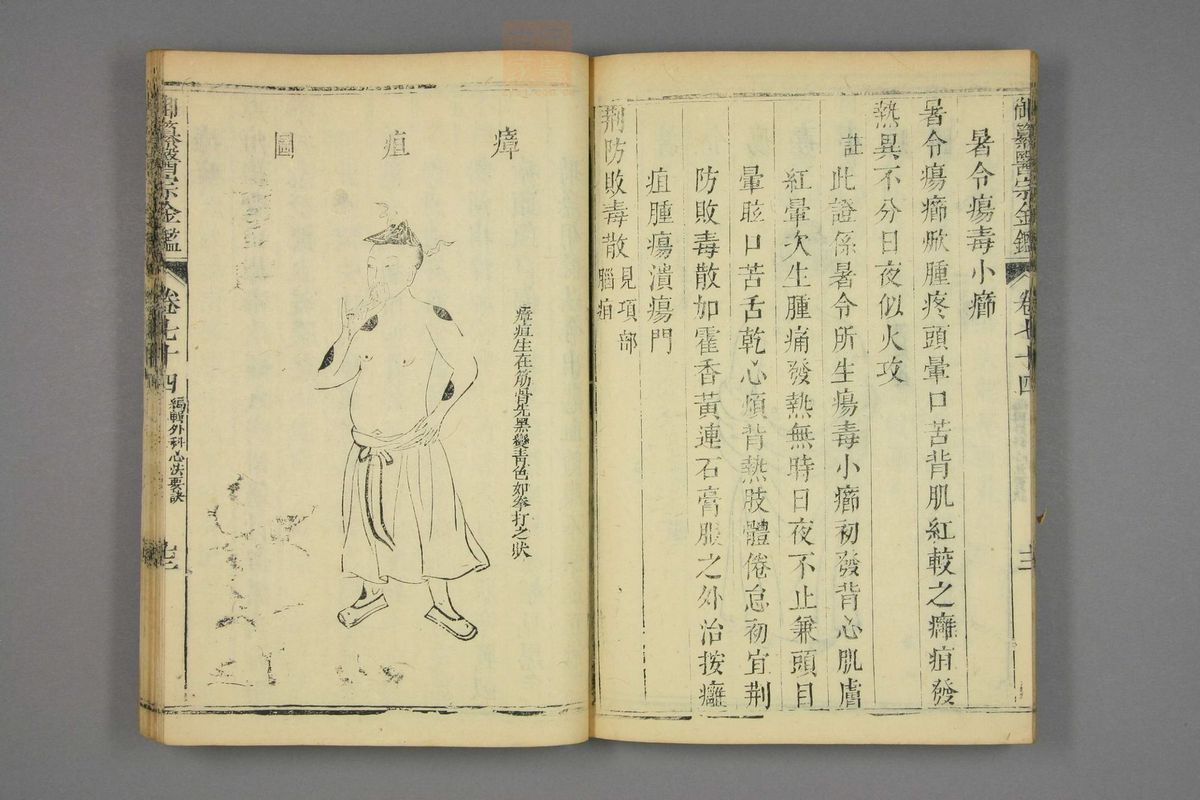 御纂醫宗金鑑 卷七十四
暑令瘍毒小癤
暑令瘍癤焮腫疼頭暈口苦背肌紅較之癰疽發
熱異不分日夜似火攻
註此證係暑令所生瘍毒小癤初發背心肌膚
紅暈次生腫痛發熱無時日夜不止兼頭目
暈眩口苦舌乾心煩背熱肢體倦怠初宜荆
防敗毒散加霍香黃連石膏服之外治按癰
疽腫瘍潰瘍門
荆防敗毒散見項部
腦疽
瘴疽圖
瘴疽生在筋骨先黑變青色如拳打之狀
御纂醫宗金鑑 卷七十四 編輯外科心法要訣